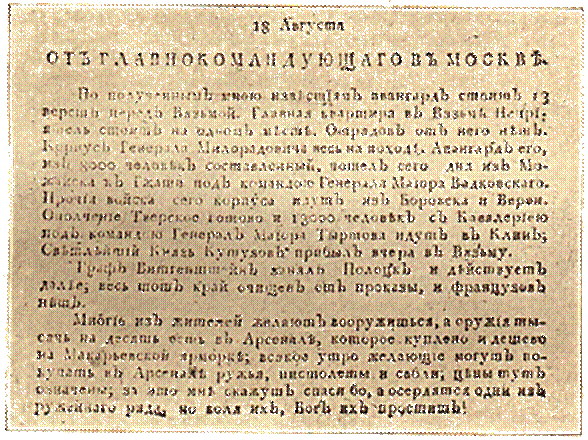 18 Августа
ОТЪ ГЛАВНОКОМАНДУЮЩАГО ВЪ МОСКВѢ.
По полученнымъ мною извѣстіямъ авангардъ стоитъ 13
верстъ передъ Вязьмой. Главная квартира въ Вязьмѣ. Непрі-
ятель стоитъ на одномъ мѣстѣ. Отрядовъ отъ него нѣтъ.
Корпусъ Генерала Милорадовича весь на походѣ. Авангардъ его,
изъ 9000 человѣкъ составленный, пошелъ сего дня изъ Мо-
жайска къ Гжати подъ командою Генерала Маіора Вадковскаго.
Прочія войска сего корпуса идутъ изъ Боровска и Вереи.
Ополченіе Тверское готово и 13000 человѣкъ съ Кавалеріею
подъ командою Генералъ Маіора Тыртова идутъ въ Клинъ;
Свѣтлѣйшій Князь Кутузовъ прибылъ вчера въ Вязьму.
Графъ Витгенштейнъ занялъ Полоцкъ и дѣйствуетъ
далѣе; весь тотъ край очищенъ отъ проказы, и французовъ
нѣтъ.
Многіе изъ жителей желаютъ вооружиться, а оружія ты-
сячь на десять есть въ Арсеналѣ, которое куплено и дешево
на Макарьевской ярморкѣ; всякое утро желающіе могутъ по-
купать въ Арсеналѣ ружья, пистолеты и сабли; цѣны тутъ
означены; за это мнѣ скажутъ спасибо, а осердятся одни изъ
ружейнаго ряда, но воля ихъ, Богъ ихъ проститъ!